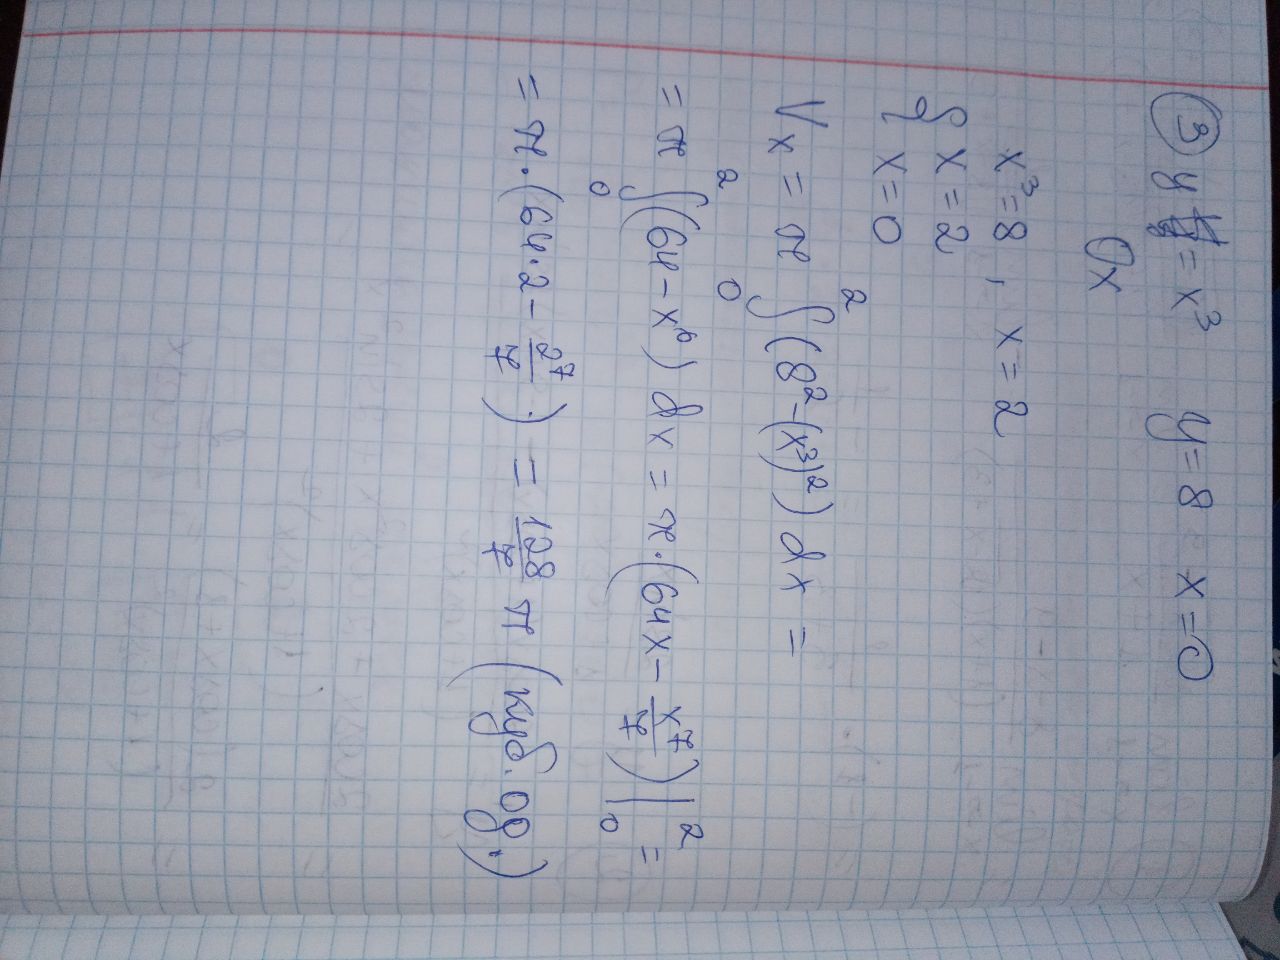 ③ y = x³ y = 8 x = 0
Ox
x³ = 8, x = 2
{ x = 2
x = 0
Vx = π ∫₀² (8² - (x³)²) dx =
= π ∫₀² (64 - x⁶) dx = π · (64x - x⁷/7) |₀² =
= π · (64 · 2 - 2⁷/7) = 128/7 π (куб. од.)